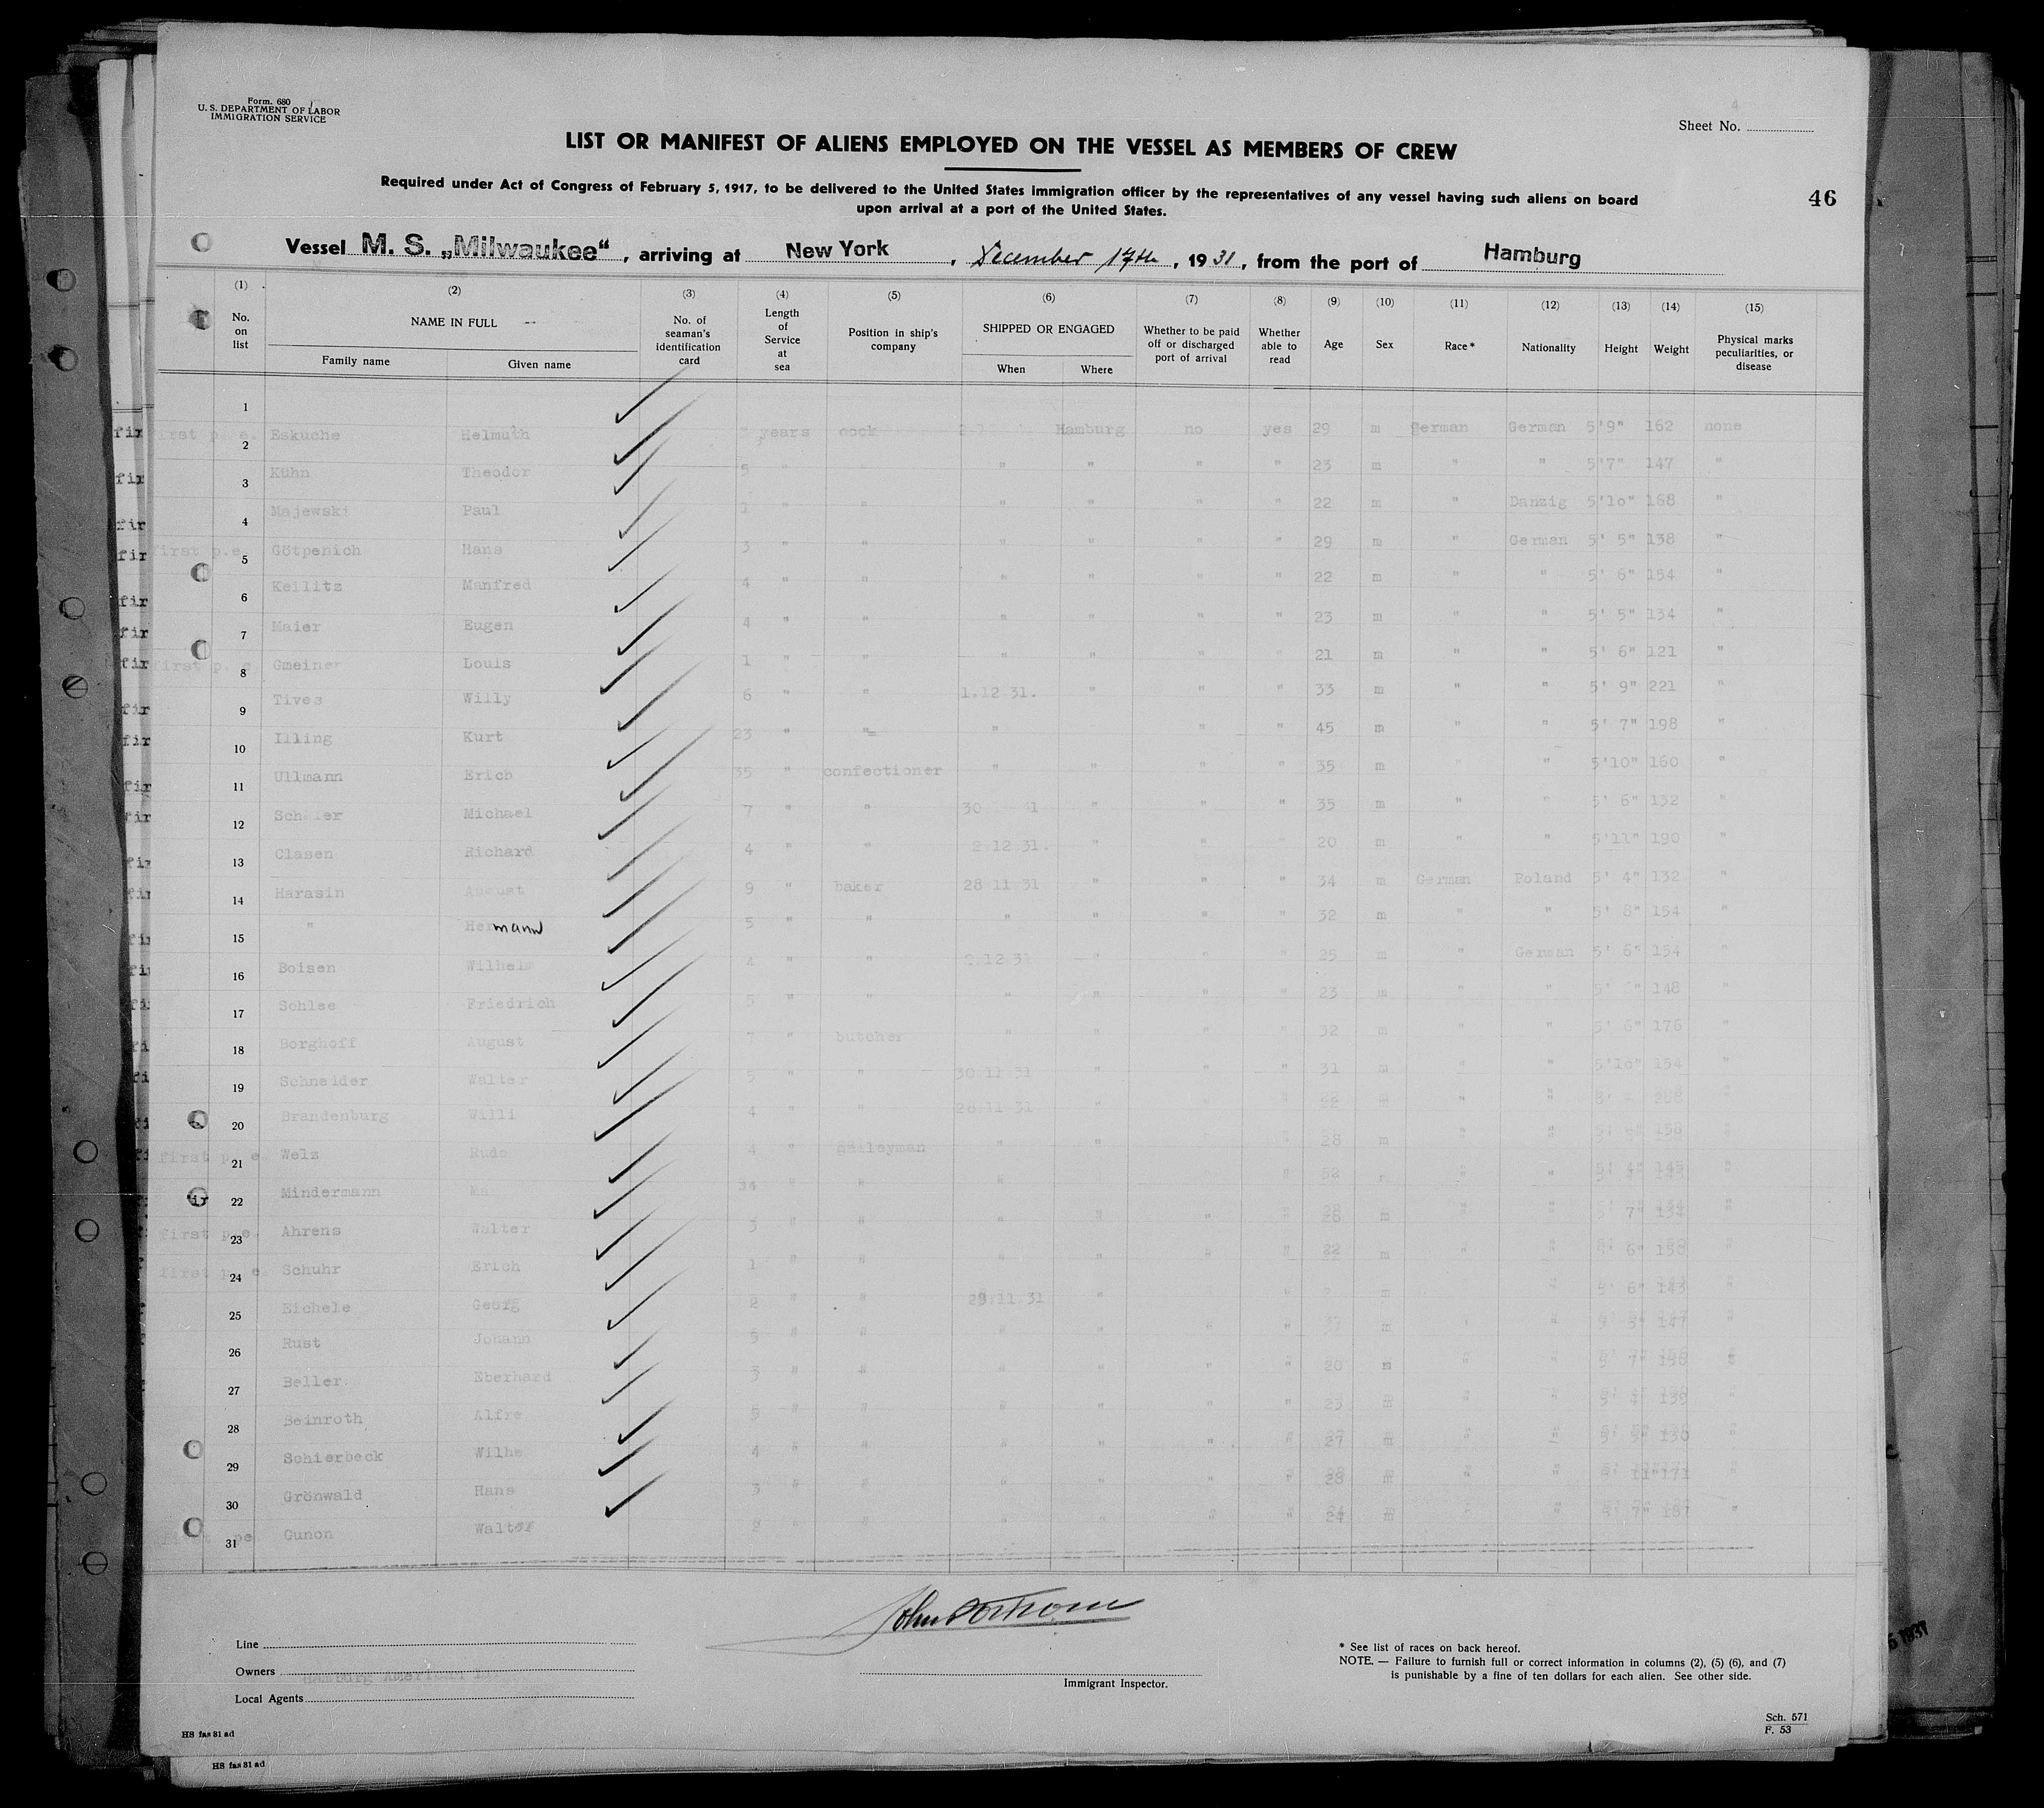 Form. 680
U. S. DEPARTMENT OF LABOR
IMMIGRATION SERVICE
4
Sheet No.
LIST OR MANIFEST OF ALIENS EMPLOYED ON THE VESSEL AS MEMBERS OF CREW
Required under Act of Congress of February 5, 1917, to be delivered to the United States immigration officer by the representatives of any vessel having such aliens on board
upon arrival at a port of the United States.
46
Vessel M. S. „Milwaukee“, arriving at New York, December 17th, 1931, from the port of Hamburg
(1) No. on list
(2) NAME IN FULL Family name Given name
(3) No. of seaman's identification card
(4) Length of Service at sea
(5) Position in ship's company
(6) SHIPPED OR ENGAGED When Where
(7) Whether to be paid off or discharged port of arrival
(8) Whether able to read
(9) Age
(10) Sex
(11) Race*
(12) Nationality
(13) Height
(14) Weight
(15) Physical marks peculiarities, or disease
1
first p. e. Eskuche Helmuth years cock Hamburg no yes 29 m German German 5'9" 162 none
2
Kühn Theodor 5 " " " " " " 23 m " " 5'7" 147 "
3
Majewski Paul " " " " " " 22 m " Danzig 5'10" 168 "
4
first p.e. Götpenich Hans 3 " " " " " " 29 m " German 5' 5" 138 "
5
Keilitz Manfred 4 " " " " " " 22 m " " 5' 6" 154 "
6
Maier Eugen 4 " " " " " " 23 m " " 5' 5" 134 "
7
first p. e. Gmeiner Louis 1 " " " " " " 21 m " " 5' 6" 121 "
8
Tives Willy 6 " " 1.12 31. " " " 33 m " " 5' 9" 221 "
9
Illing Kurt 23 " " " " " 45 m " " 5' 7" 198 "
10
Ullmann Erich 35 " confectioner " " " " 35 m " " 5'10" 160 "
11
Michael 7 " " 30 " " " 35 m " " 5' 6" 132 "
12
Clasen Richard 4 " " 2.12 31. " " " 20 m " " 5'11" 190 "
13
Harasin August 9 " baker 28 11 31 " " " 34 m German Poland 5' 4" 132 "
14
" Hermann 5 " " " " " " 32 m " " 5' 8" 154 "
15
Boisen Wilhelm 4 " " 2.12 31 " " " 25 m " German 5' 6" 154 "
16
Schlee Friedrich 5 " " " " " " 23 m " " 148 "
17
Borghoff August 7 " butcher " " " " 32 m " " 5' 6" 176 "
18
Schneider Walter 5 " " 30.11 31 " " " 31 m " " 5'10" 154 "
19
Brandenburg Willi 4 " " 28 11 31 " " m " "
20
first p. e. Welz 4 " galleyman " " " 28 m " " 158 "
21
Mindermann " " " " 52 " " 5' 4" 145 "
22
first p.e. Ahrens Walter 3 " " " " " " 26 m " " 5' 7" 134 "
23
first p. e. Schuhr Erich 1 " " " " " " 22 m " " 5' 6" 150 "
24
Eichele Georg 2 " " 28.11 31 " m 5' 6" 143
25
Rust Johann 5 " " " " " " m " " 147 "
26
Beller Eberhard 3 " " " " " " 20 m " " 5' 7" "
27
Beinroth 5 " " " " " " 23 m " " 5' 4" "
28
Schierbeck 4 " " " " " " 27 m " " 130 "
29
Grönwald Hans 3 " " " " " " 28 m " " 171 "
30
Gunon Walter " " " " " " 24 m " " 7" 187 "
31
Line
Owners
Hamburg American
Local Agents
Immigrant Inspector.
* See list of races on back hereof.
NOTE. — Failure to furnish full or correct information in columns (2), (5) (6), and (7)
is punishable by a fine of ten dollars for each alien. See other side.
Sch. 571
F. 53
HS fas 81 ad
HS fas 81 ad